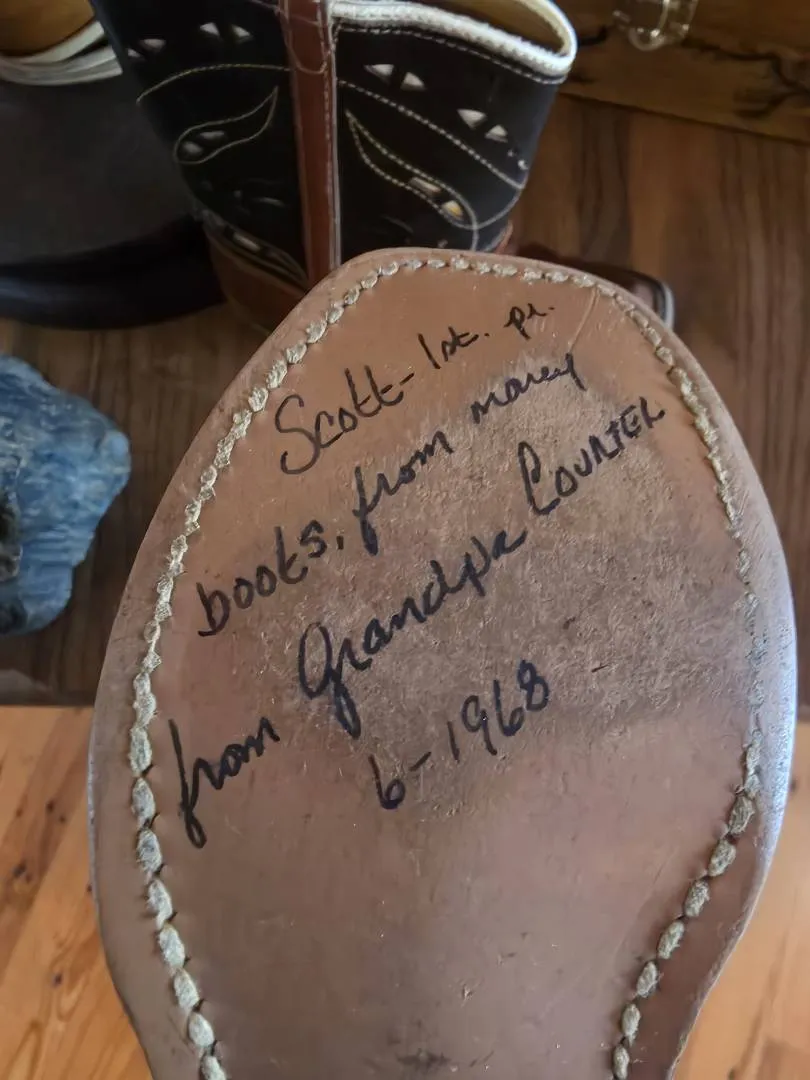 Scott - 1st. pr.
boots, from money
from Grandpa
6-1968